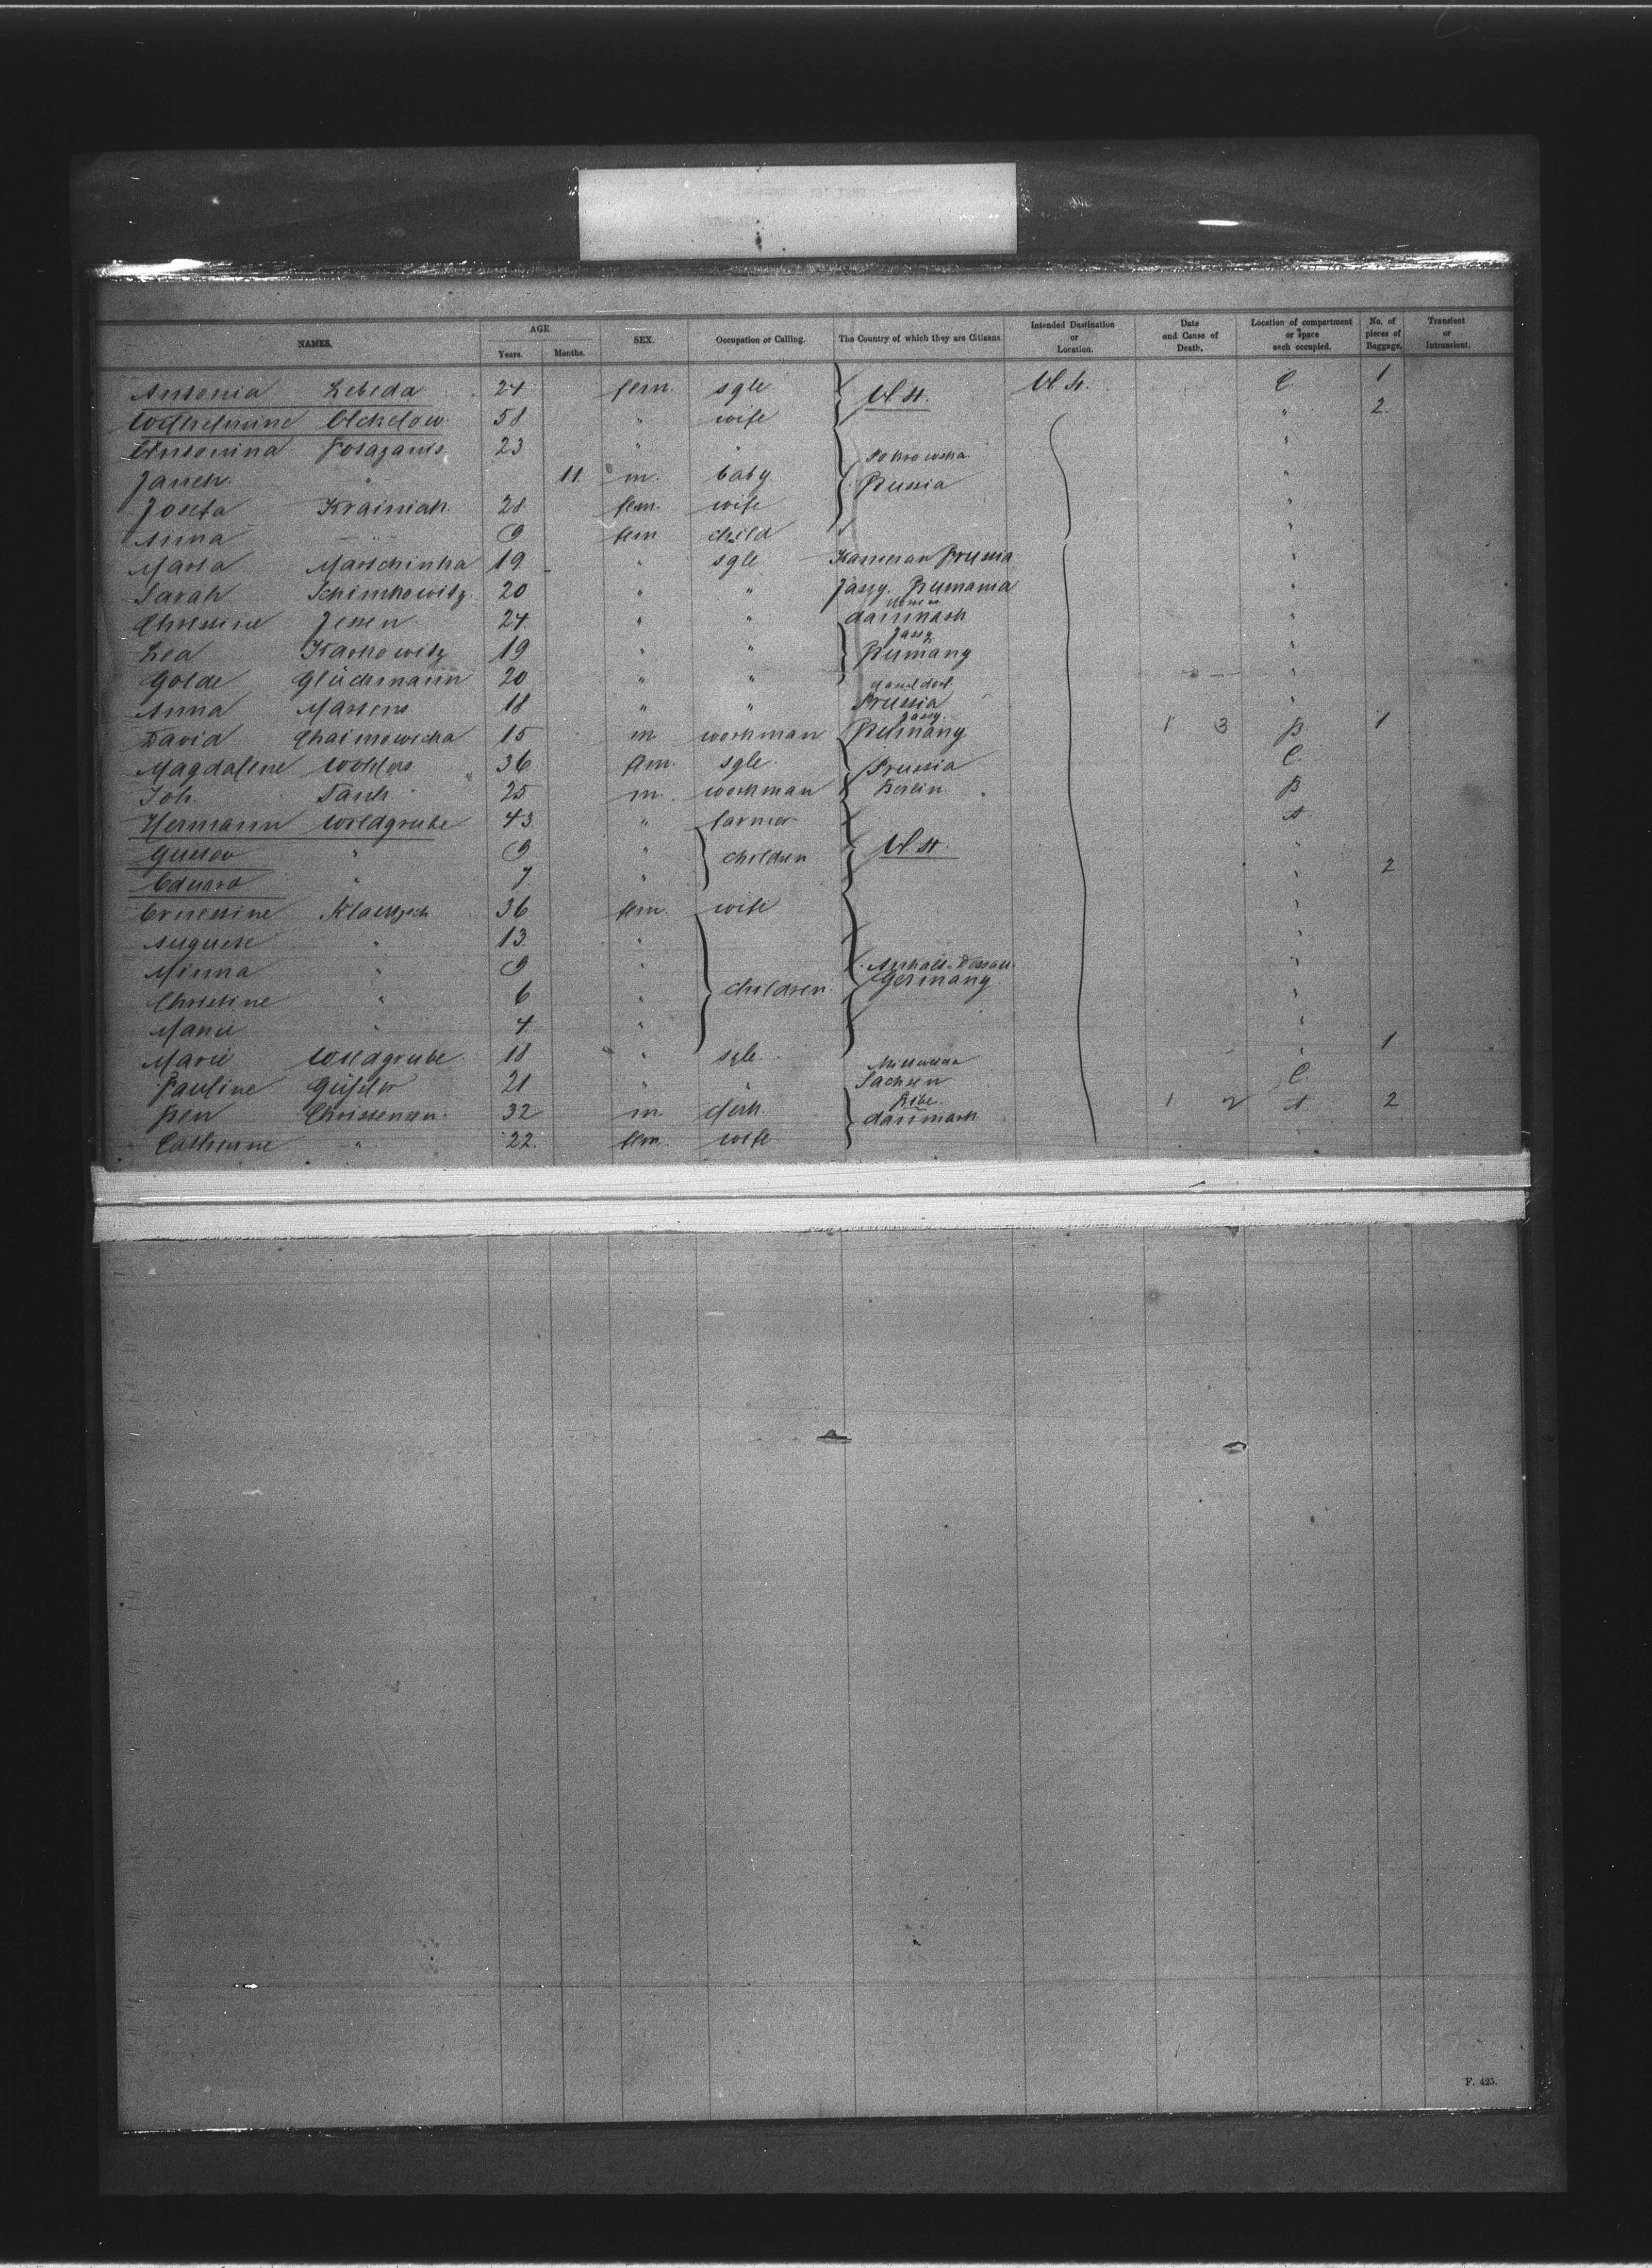 NAMES. AGE. Years. Months. SEX. Occupation or Calling. The Country of which they are Citizens. Intended Destination or Location. Date and Cause of Death. Location of compartment or space each occupied. No. of pieces of Baggage. Transient or Intransient.
Antonia Lebeda 24 fem. sgle U. St. U. St. C. 1
Wilhelmine 58 " wife " 2.
Antonina 23 " " "
" 11 m. baby Russia "
Josefa Krainiak 28 fem. wife "
Anna " 9 fem child "
Maria Marschinka 19 " sgle Prussia "
Sarah Schimkowitz 20 " " Jassy. Rumania "
Christine Jessen 24 " " danmark "
Lea Karkowitz 19 " " Jassy Rumany "
Golde Glückmann 20 " " "
Anna Martens 18 " " Prussia "
David Chaimowicha 15 m workman Jassy. Rumany 1 3 B. 1
Magdalene Wohlers 36 fem. sgle. Prussia C.
Joh. 25 m. workman Berlin B
Hermann Wildgrube 43 " farmer U. St. A
Gustav " 9 " children "
Eduard " 7 " " 2
Ernestine 36 fem. wife "
Auguste " 13 " "
Minna " 9 " Anhalt-Dessau. "
Christine " 6 " children. Germany "
Marie " 4 " "
Marie Wildgrube 18 " sgle. " 1
Pauline 21 " " Sachsen C.
Christensen 32 m Ribe. danmark 1 2 A 2
Cathrine " 22. fem. wife
F. 425.